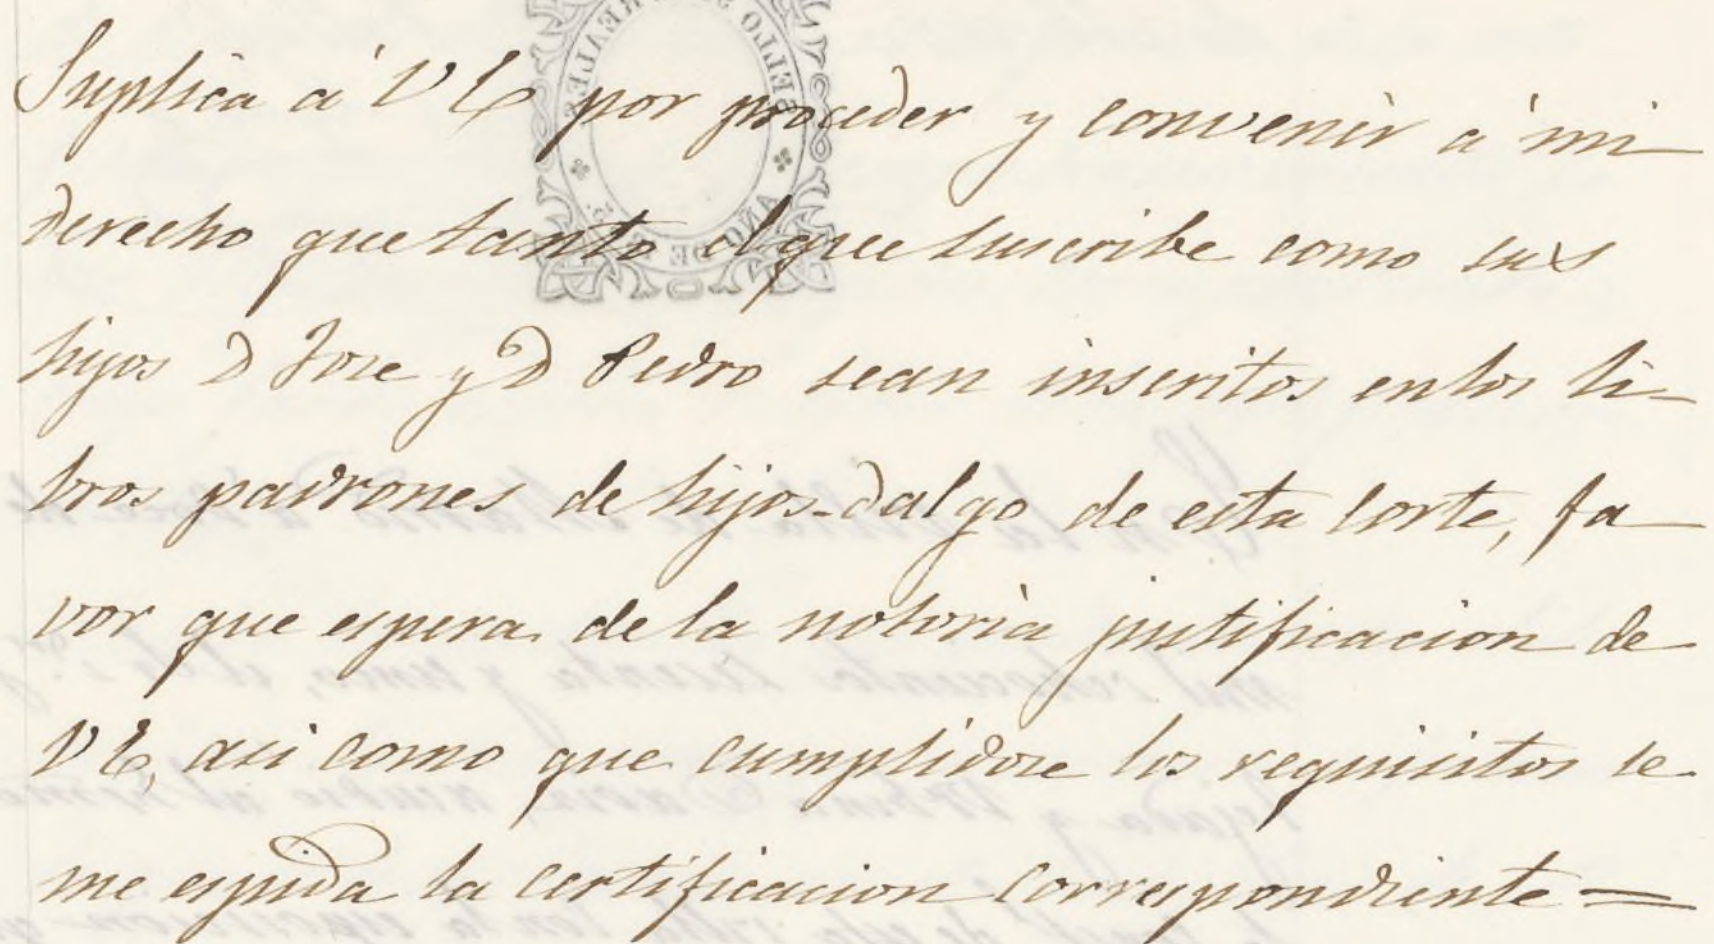 Suplica á V E por proceder y convenir á mi
derecho que tanto el que suscribe como sus
hijos D Jose y D Pedro sean inscritos en los li-
bros padrones de hijos-dalgo de esta Corte, fa
vor que espera de la notoria justificacion de
V E, asi como que cumplidose los requisitos se
me espida la certificacion correspondiente =